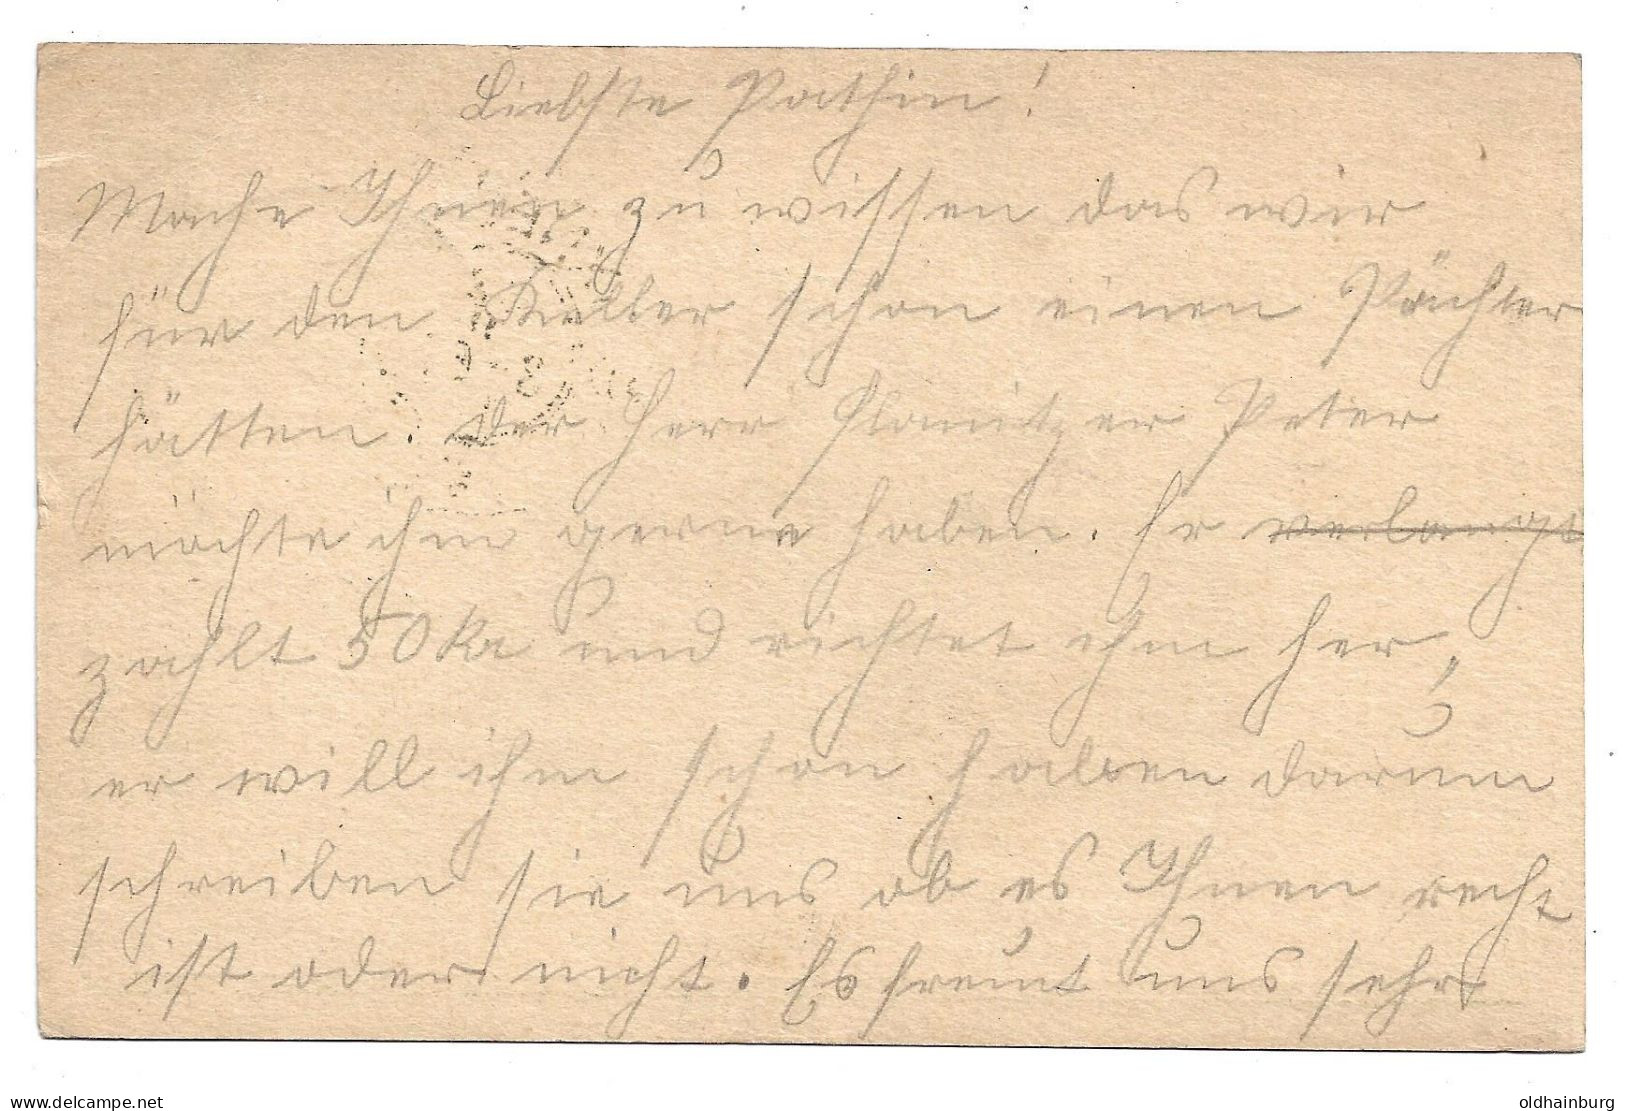 Liebste Pathin!
Mache Ihnen zu wissen das wir
für den Keller schon einen Pächter
hätten. Der Herr Plamitzer Peter
möchte ihm gerne haben. Er verlangt
zahlt 50 Kr und richtet ihm her,
er will ihm schon haben darum
schreiben sie uns ob es Ihnen recht
ist oder nicht. Es freut uns sehr
www.delcampe.net
oldhainburg